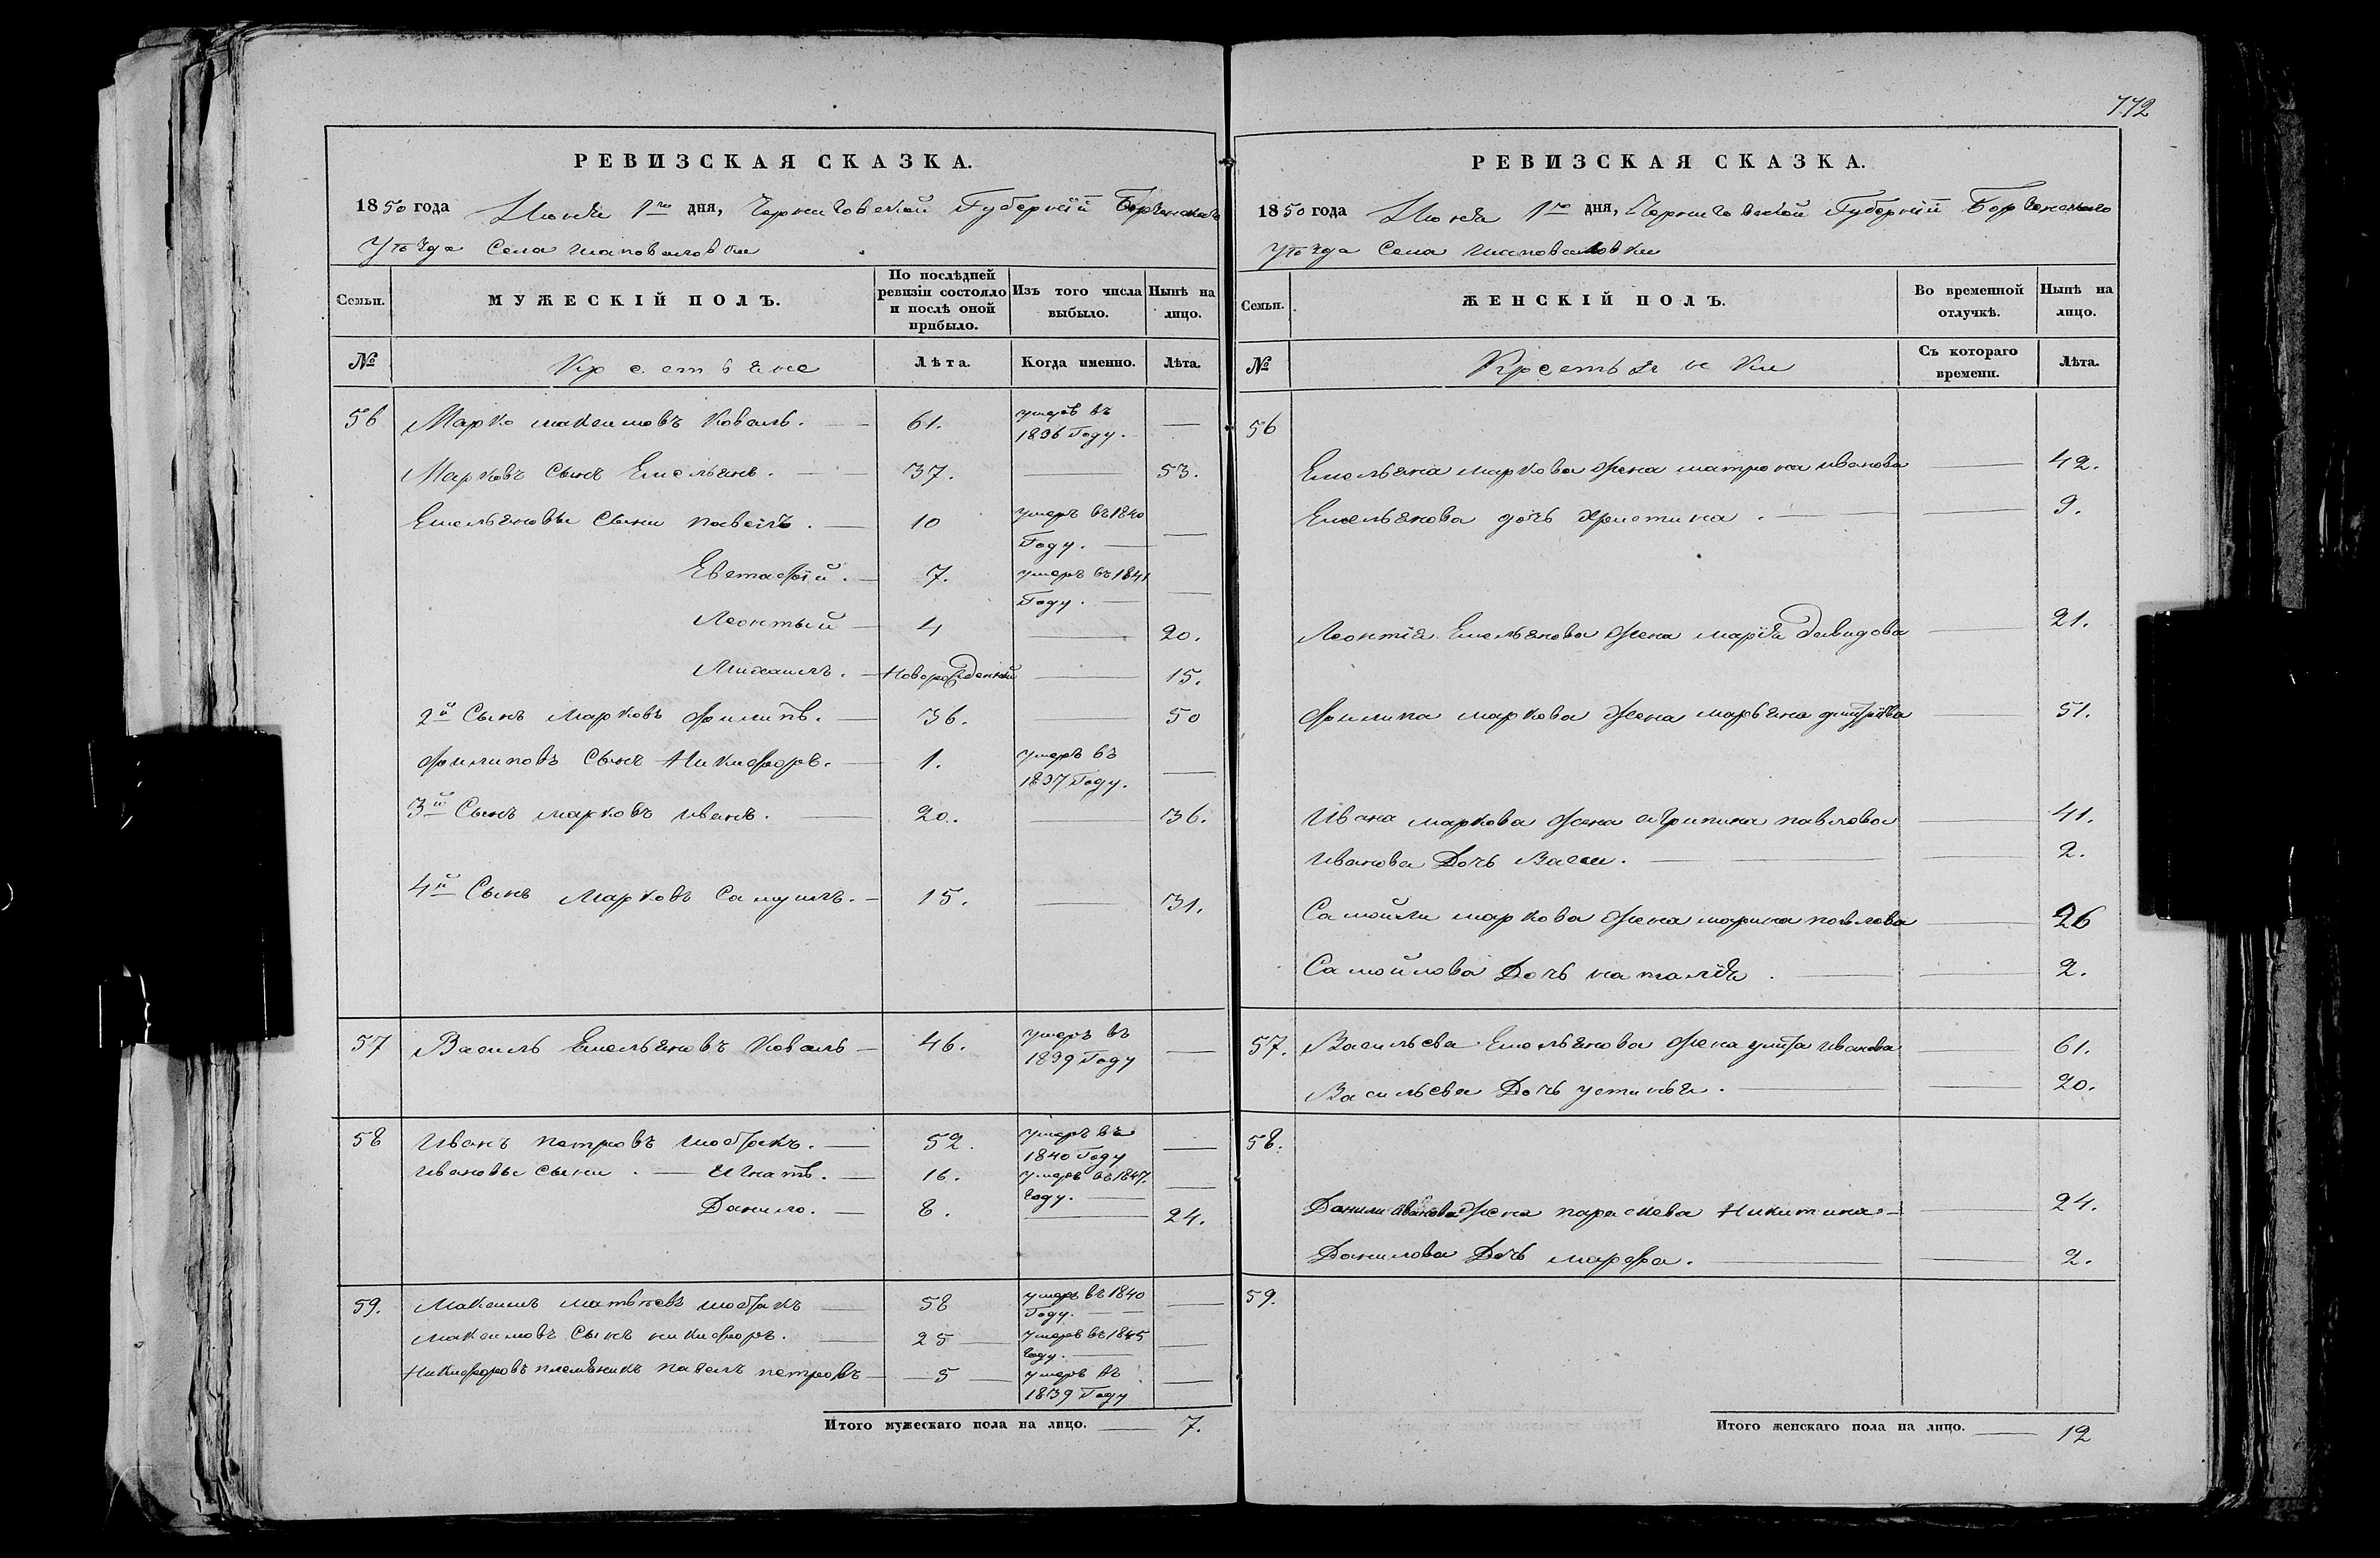 РЕВИЗСКАЯ СКАЗКА.
1850 года Июня 1го дня, Черниговской Губернiй Борзенскаго
Уѣзда Села шаповаловки
Семьи. МУЖЕСКIЙ ПОЛЪ. По послѣдней ревизiи состояло и послѣ оной прибыло. Изъ того числа выбыло. Нынѣ на лицо.
№ Крестьяне Лѣта. Когда именно. Лѣта.
56 Марко максимовъ Коваль. — 61. умеръ въ 1836 Году. —
Марковъ Сынъ Емельянъ. — 37. — 53.
Емельяновы Сыни павелъ. — 10 умеръ въ 1840 Году. —
Евстафiй. — 7. умеръ въ 1841 Году. —
Леонтый — 4 — 20.
Михаилъ. — Новорожденный — 15.
2й Сынъ Марковъ филипъ. — 36. 50
филиповъ Сынъ Никифоръ. — 1. умеръ въ 1837 Году. —
3й Сынъ марковъ иванъ. — 20. — 36.
4й Сынъ Марковъ Самуилъ. — 15. — 31.
57 Василь Емельяновъ Коваль — 46. умеръ въ 1839 Году —
58 Иванъ петровъ — 52. умеръ въ 1840 Году —
ивановы сыни. — Игнатъ. — 16. умеръ въ 1847. Году. —
Данило. — 8. — 24.
59. Максимъ матвѣевъ — 58 умеръ въ 1840 Году. —
максимовъ Сынъ никифоръ. — 25 — умеръ въ 1845 Году. —
Никифоровъ племѣникъ павелъ петровъ — 5 — умеръ въ 1839 Году —
Итого мужескаго пола на лицо. — 7.
112
РЕВИЗСКАЯ СКАЗКА.
1850 года Июня 1го дня, Черниговской Губернiй Борзенскаго
Уѣзда Села шаповаловки
Семьи. ЖЕНСКIЙ ПОЛЪ. Во временной отлучкѣ. Нынѣ на лицо.
№ Крестьянки Съ котораго времени. Лѣта.
56
Емельяна маркова жена матрона иванова — 42.
Емельянова дочь христина. — 9.
Леонтiя Емельянова жена марiя давидова — 21.
филипа маркова жена марьяна — 51.
Ивана маркова жена агрипина павлова — 41.
иванова Дочь Васса. — 2.
Самойли маркова жена марина павлова — 26
Самойлова Дочь наталiя. — 2.
57. Васильева Емельянова жена иванова — 61.
Васильева Дочь устинья. — 20.
58.
Данили иванова жена параскева Никитина — 24.
Данилова Дочь марфа. — 2.
59.
Итого женскаго пола на лицо. — 12